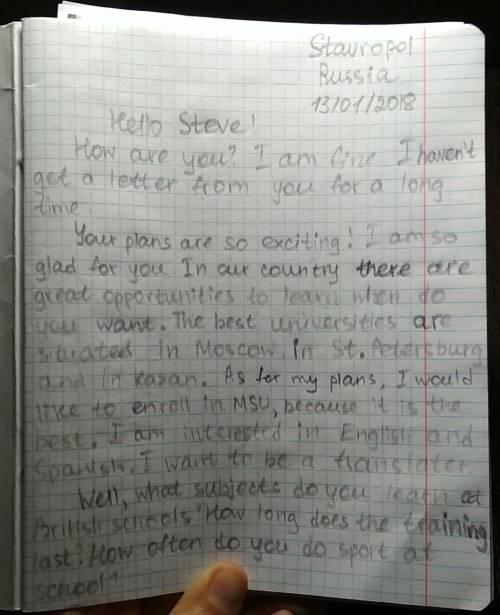 Stavropol
Russia
13/01/2018
Hello Steve!
How are you? I am fine I haven't
get a letter from you for a long
time.
Your plans are so exciting! I am so
glad for you In our country there are
great opportunities to learn when do
you want. The best universities are
situated in Moscow, in St. Petersburg
and in Kazan. As for my plans, I would
like to enroll in MSU, because it is the
best. I am interested in English and
Spanish. I want to be a translater.
Well, what subjects do you learn at
British schools? How long does the training
last? How often do you do sport at
school?